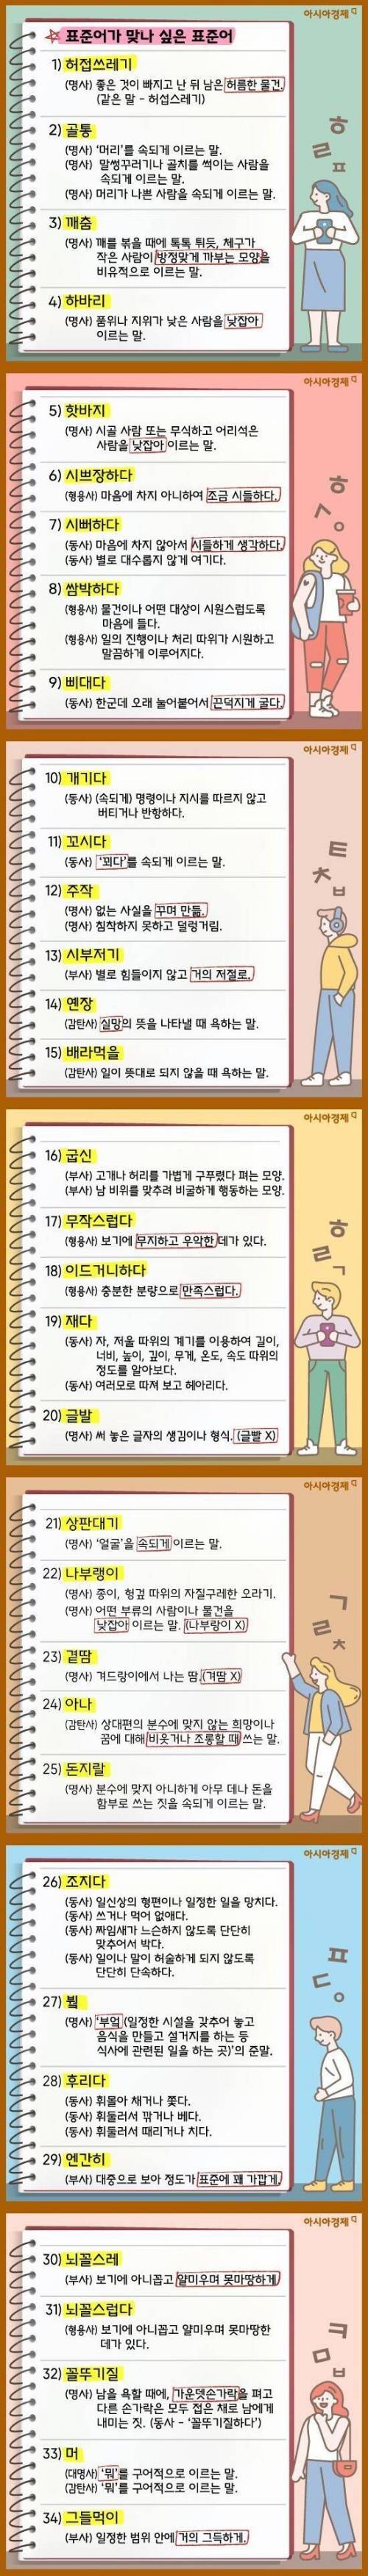 아시아경제
☆ 표준어가 맞나 싶은 표준어
1) 허접쓰레기
(명사) 좋은 것이 빠지고 난 뒤 남은 허름한 물건.
(같은 말 - 허섭스레기)
2) 골통
(명사) '머리'를 속되게 이르는 말.
(명사) 말썽꾸러기나 골치를 썩이는 사람을
속되게 이르는 말.
(명사) 머리가 나쁜 사람을 속되게 이르는 말.
3) 깨춤
(명사) 깨를 볶을 때에 톡톡 튀듯, 체구가
작은 사람이 방정맞게 까부는 모양을
비유적으로 이르는 말.
4) 하바리
(명사) 품위나 지위가 낮은 사람을 낮잡아
이르는 말.
ㅎ
ㄹ
ㅍ
아시아경제
5) 핫바지
(명사) 시골 사람 또는 무식하고 어리석은
사람을 낮잡아 이르는 말.
6) 시쁘장하다
(형용사) 마음에 차지 아니하여 조금 시들하다.
7) 시뻐하다
(동사) 마음에 차지 않아서 시들하게 생각하다.
(동사) 별로 대수롭지 않게 여기다.
8) 쌈박하다
(형용사) 물건이나 어떤 대상이 시원스럽도록
마음에 들다.
(형용사) 일의 진행이나 처리 따위가 시원하고
말끔하게 이루어지다.
9) 삐대다
(동사) 한군데 오래 눌어붙어서 끈덕지게 굴다.
ㅎ
ㅅ
ㅇ
아시아경제
10) 개기다
(동사) (속되게) 명령이나 지시를 따르지 않고
버티거나 반항하다.
11) 꼬시다
(동사) '꾀다'를 속되게 이르는 말.
12) 주작
(명사) 없는 사실을 꾸며 만듦.
(명사) 침착하지 못하고 덜렁거림.
13) 시부저기
(부사) 별로 힘들이지 않고 거의 저절로.
14) 옌장
(감탄사) 실망의 뜻을 나타낼 때 욕하는 말.
15) 배라먹을
(감탄사) 일이 뜻대로 되지 않을 때 욕하는 말.
ㅌ
ㅊ
ㅂ
아시아경제
16) 굽신
(부사) 고개나 허리를 가볍게 구푸렸다 펴는 모양.
(부사) 남 비위를 맞추려 비굴하게 행동하는 모양.
17) 무작스럽다
(형용사) 보기에 무지하고 우악한 데가 있다.
18) 이드거니하다
(형용사) 충분한 분량으로 만족스럽다.
19) 재다
(동사) 자, 저울 따위의 계기를 이용하여 길이,
너비, 높이, 깊이, 무게, 온도, 속도 따위의
정도를 알아보다.
(동사) 여러모로 따져 보고 헤아리다.
20) 글발
(명사) 써 놓은 글자의 생김이나 형식. (글빨 X)
ㅎ
ㄹ
ㄱ
아시아경제
21) 상판대기
(명사) '얼굴'을 속되게 이르는 말.
22) 나부랭이
(명사) 종이, 헝겊 따위의 자질구레한 오라기.
(명사) 어떤 부류의 사람이나 물건을
낮잡아 이르는 말. (나부랑이 X)
23) 곁땀
(명사) 겨드랑이에서 나는 땀.(겨땀 X)
24) 아나
(감탄사) 상대편의 분수에 맞지 않는 희망이나
꿈에 대해 비웃거나 조롱할 때 쓰는 말.
25) 돈지랄
(명사) 분수에 맞지 아니하게 아무 데나 돈을
함부로 쓰는 짓을 속되게 이르는 말.
ㄱ
ㄹ
ㅊ
아시아경제
26) 조지다
(동사) 일신상의 형편이나 일정한 일을 망치다.
(동사) 쓰거나 먹어 없애다.
(동사) 짜임새가 느슨하지 않도록 단단히
맞추어서 박다.
(동사) 일이나 말이 허술하게 되지 않도록
단단히 단속하다.
27) 붴
(명사) '부엌 (일정한 시설을 갖추어 놓고
음식을 만들고 설거지를 하는 등
식사에 관련된 일을 하는 곳)'의 준말.
28) 후리다
(동사) 휘몰아 채거나 쫓다.
(동사) 휘둘러서 깎거나 베다.
(동사) 휘둘러서 때리거나 치다.
29) 엔간히
(부사) 대중으로 보아 정도가 표준에 꽤 가깝게.
ㅍ
ㄷ
ㅇ
아시아경제
30) 뇌꼴스레
(부사) 보기에 아니꼽고 얄미우며 못마땅하게
31) 뇌꼴스럽다
(형용사) 보기에 아니꼽고 얄미우며 못마땅한
데가 있다.
32) 꼴뚜기질
(명사) 남을 욕할 때에, 가운뎃손가락을 펴고
다른 손가락은 모두 접은 채로 남에게
내미는 짓. (동사 - '꼴뚜기질하다')
33) 머
(대명사) '뭐'를 구어적으로 이르는 말.
(감탄사) '뭐'를 구어적으로 이르는 말.
34) 그들먹이
(부사) 일정한 범위 안에 거의 그득하게.
ㅋ
ㅁ
ㅂ